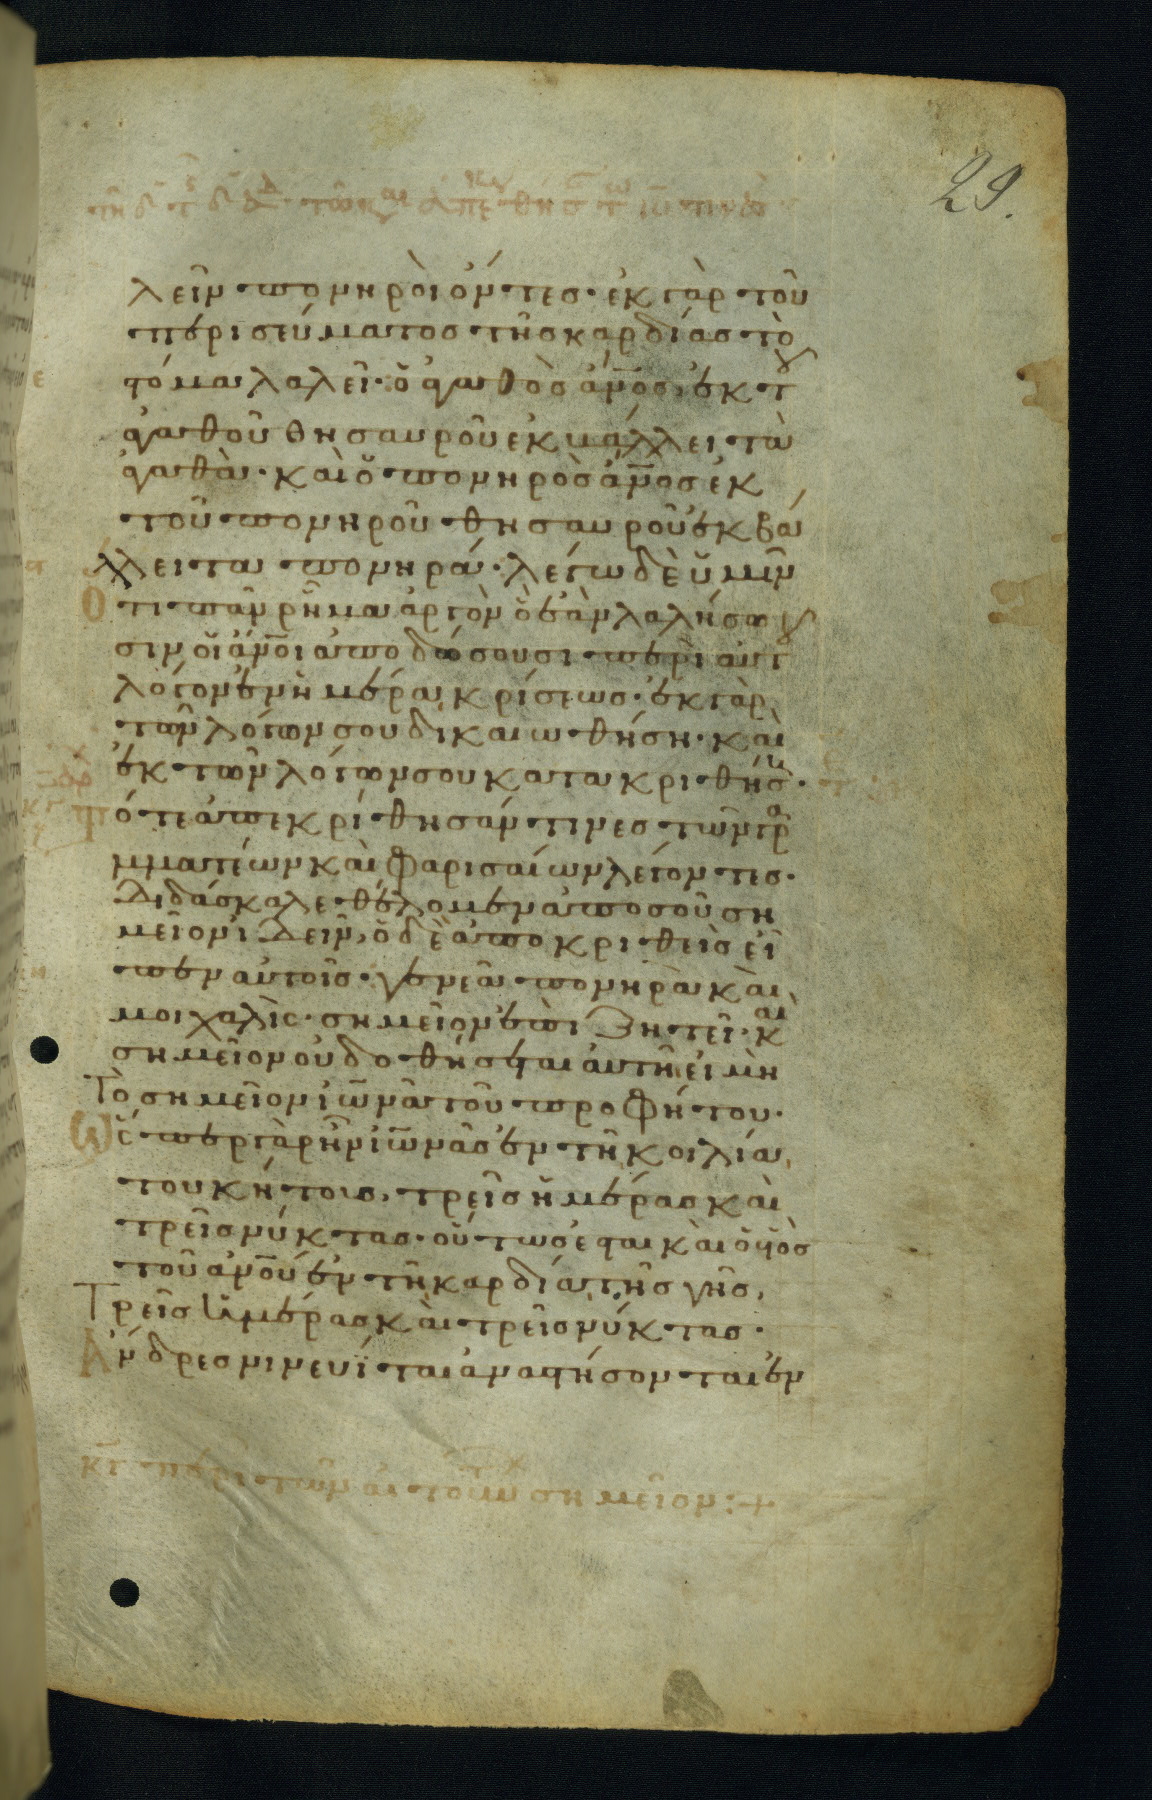 29.
λεῖν πονηροὶ ὄντες· ἐκ γὰρ τοῦ
περισεύματος τῆς καρδίας τὸ
στόμα λαλεῖ· ὁ ἀγαθὸς ἄνος, ἐκ τοῦ
ἀγαθοῦ θησαυροῦ ἐκβάλλει τὰ
ἀγαθά· καὶ ὁ πονηρὸς ἄνος ἐκ
τοῦ πονηροῦ θησαυροῦ ἐκβά
λλει τα πονηρά· λέγω δὲ ὑμῖν
Ὅτι πᾶν ῥῆμα ἀργὸν ὃ ἐὰν λαλήσω
σιν οἱ ἄνοι ἀποδώσουσι περὶ αυτοῦ
λόγον ἐν ἡμέρα κρίσεως· ἐκ γὰρ
τῶν λόγων σου δικαιωθήση· καὶ
ἐκ τῶν λόγων σου κατακριθήση·
Τότε ἀπεκρίθησάν τινες τῶν γρα
μματέων καὶ Φαρισαίων λέγοντες·
Διδάσκαλε θέλομεν ἀπο σοῦ ση
μεῖον ἰδεῖν, ὁ δὲ ἀποκριθεὶς εἶ
πεν αὐτοῖς· γενεὰ πονηρὰ καὶ
μοιχαλὶς· σημεῖον ἐπιζητεῖ· καὶ
σημεῖον οὐ δοθήσεται αὐτῆ εἰ μὴ
Τὸ σημεῖον ἰωνᾶ τοῦ προφήτου·
Ὥσπερ γὰρ ἦν ἰωνᾶς ἐν τῆ κοιλία
του κήτους, τρεῖς ἡμέρας καὶ
τρεῖς νύκτας· οὕτως ἔσται καὶ ὁ ὑὸς
τοῦ ἀνοῦ ἐν τῆ καρδία τῆς γῆς,
Τρεῖς ἡμέρας καὶ τρεῖς νύκτας·
Ἄνδρες νινευίται ἀναστήσονται ἐν
κγ περὶ τῶν αἰτούν σημεῖον:+